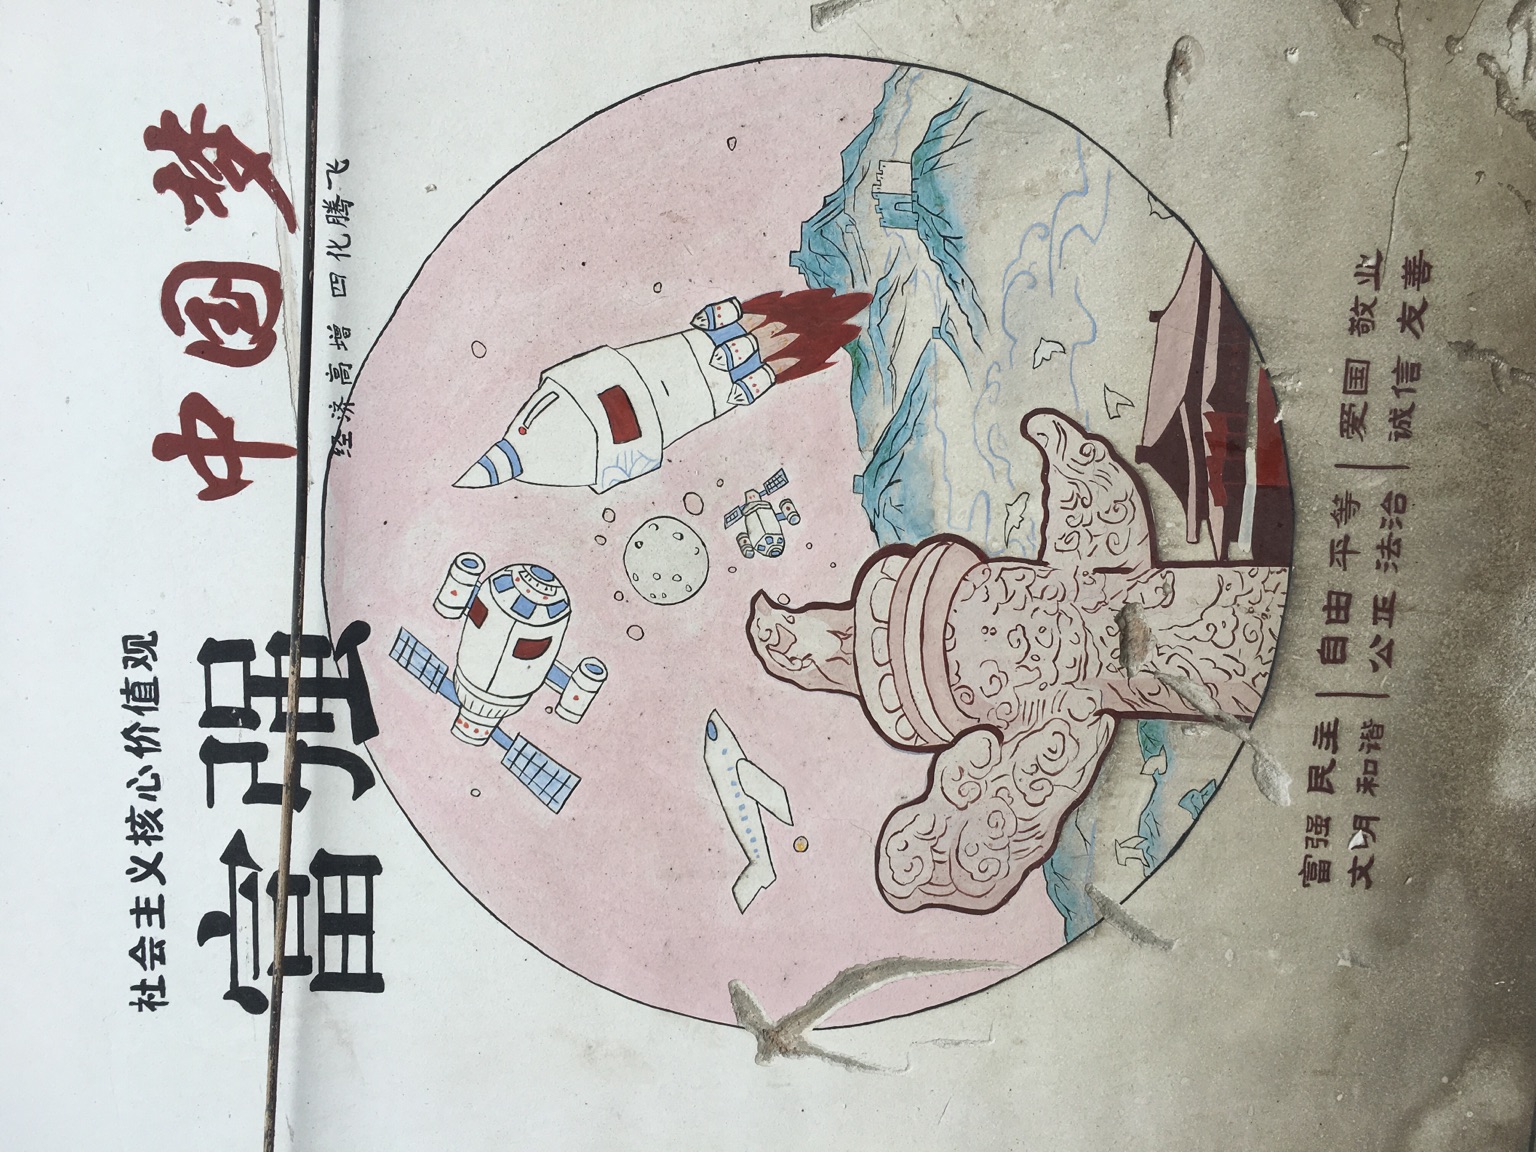 社会主义核心价值观
富强
中国梦
经济高增 四化腾飞
富强 民主
文明 和谐
自由 平等
公正 法治
爱国 敬业
诚信 友善